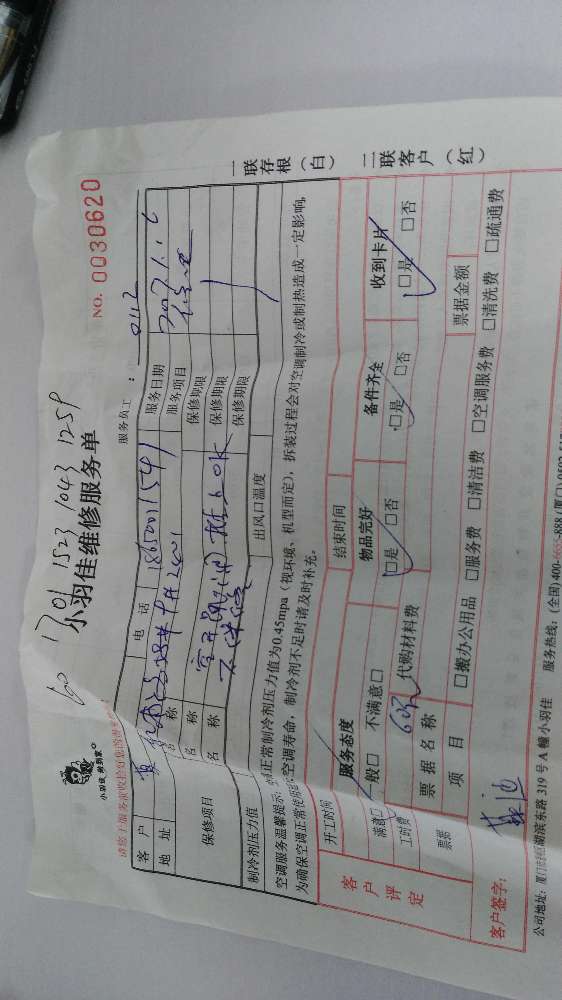 1701 1523 1043 1259
小羽佳维修服务单
NO. 0030620
小羽佳 热到家
服务员工： 0112
客户 黄 电话 18650011541 服务日期
地址 服务项目
保修项目 名称 保修期限
名称 保修期限
名称 保修期限
制冷剂压力值 出风口温度
空调服务温馨提示：正常制冷剂压力值为0.45mpa（视环境、机型而定），拆装过程会对空调制冷或制热造成一定影响，
为确保空调正常使用空调寿命，制冷剂不足时请及时补充。
一联存根（白） 二联客户（红）
客户评定
开工时间 结束时间
服务态度 物品完好 备件齐全 收到卡片
满意□ 一般□ 不满意□ □是 □否 □是 □否 □是 □否
工时费 60元 代购材料费
票据 票据名称 票据金额
项目 □搬办公用品 □服务费 □清洁费 □空调服务费 □清洗费 □疏通费
客户签字：
公司地址：厦门市湖滨东路319号A幢小羽佳 服务热线：(全国)400-6655-888 (厦门)0592-517